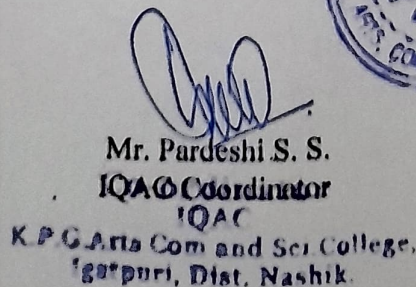 ARTS, CO
Mr. Pardeshi S. S.
IQAC Coordinator
IQAC
K.P.G. Arts Com and Sci. College,
Igatpuri, Dist. Nashik.